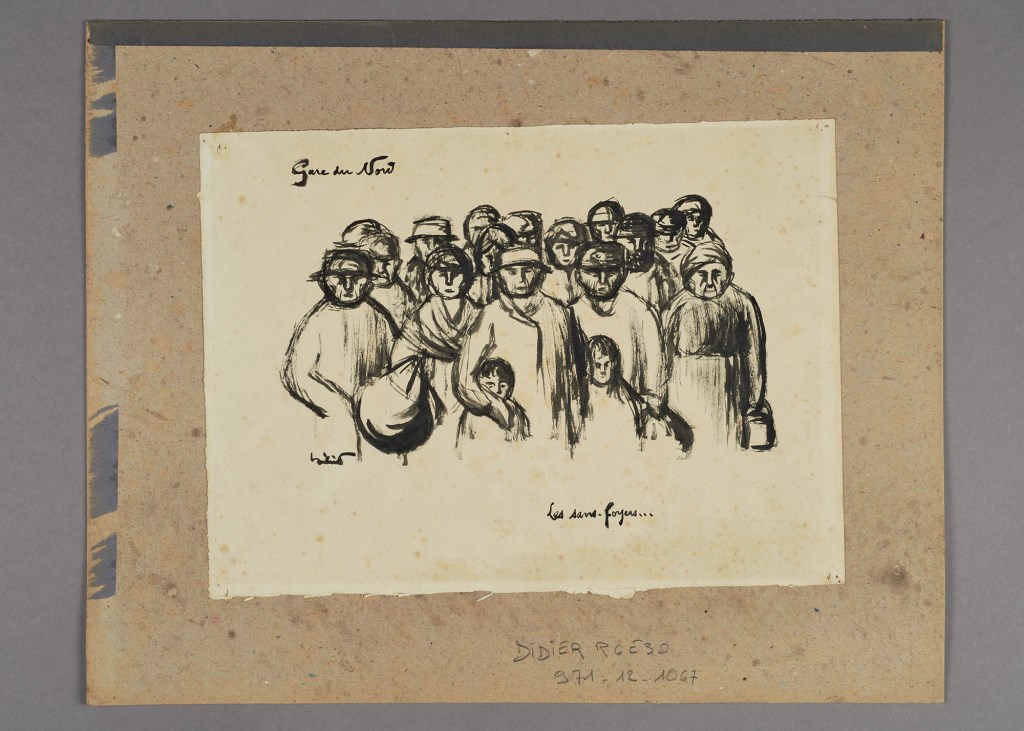 Gare du Nord
Les sans-foyers...
DIDIER
971-12-1067